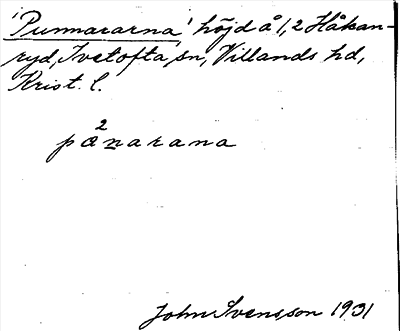 'Punnararna' höjd å 1,2 Håkan-
ryd, Ivetofta sn, Villands hd,
Krist. l.
2
pænarana
John Svensson 1931